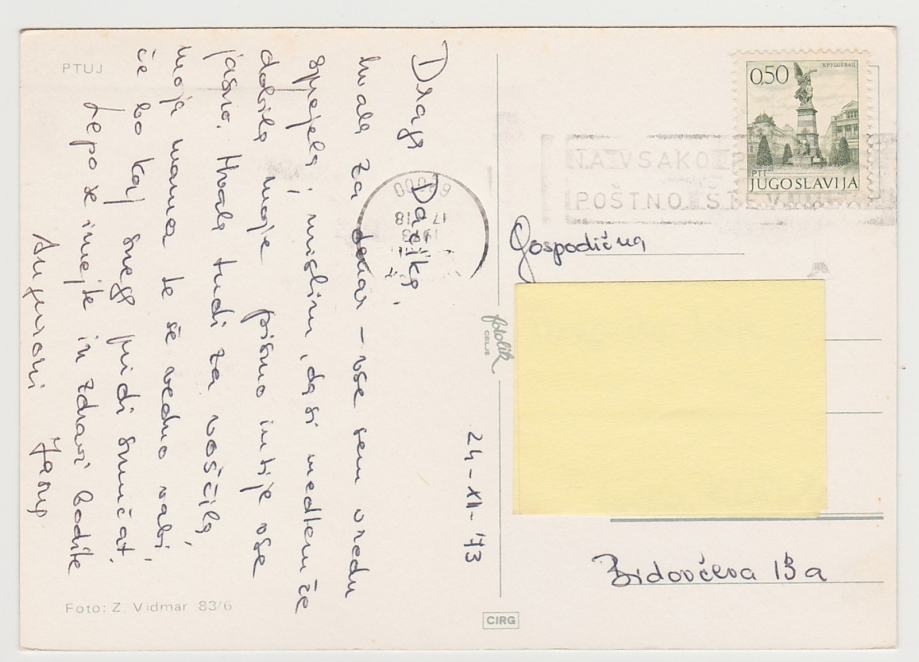 PTUJ
Draga Darika,
hvala za denar – vse sem v redu
sprejela; mislim, da si medtem že
dobila moje pismo in ti je vse
jasno. Hvala tudi za voščila,
moja mama te še vedno vabi,
če bo kaj snega pridi smučat!
Lepo se imejte in zdravi bodite
24-XII-73
Foto: Z. Vidmar 83/6
fotolik
CELJE
CIRG
0,50
KRUŠEVAC
PTT
JUGOSLAVIJA
NA VSAKO
POŠTNO ŠTEV
61000
17-18
Gospodična
Bidovčeva 13a